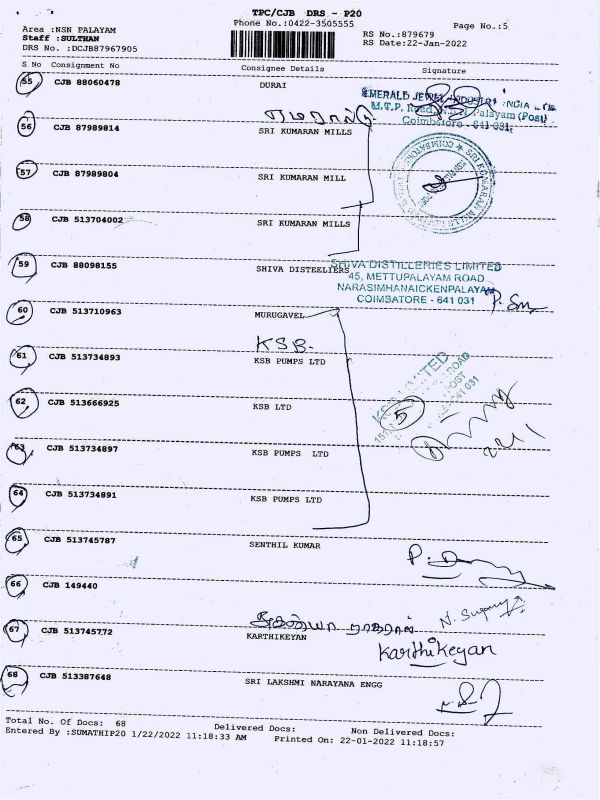 TPC/CJB DRS - P20
Area :NSN PALAYAM
Phone No.:0422-3505555
Page No.:5
Staff :SULTHAN
RS No.:879679
DRS No. :DCJB87967905
RS Date:22-Jan-2022
S No Consignment No Consignee Details Signature
55 CJB 88060478 DURAI
EMERALD JEWEL INDUSTRY INDIA LTD
M.T.P. Road, Palayam (Post)
Coimbatore - 641 031
56 CJB 87989814 SRI KUMARAN MILLS
57 CJB 87989804 SRI KUMARAN MILL
58 CJB 513704002 SRI KUMARAN MILLS
59 CJB 88098155 SHIVA DISTEELIERS
SHIVA DISTILLERIES LIMITED
45, METTUPALAYAM ROAD
NARASIMHANAICKENPALAYAM
COIMBATORE - 641 031
60 CJB 513710963 MURUGAVEL
KSB.
61 CJB 513734893 KSB PUMPS LTD
62 CJB 513666925 KSB LTD
5
63 CJB 513734897 KSB PUMPS LTD
64 CJB 513734891 KSB PUMPS LTD
65 CJB 513745787 SENTHIL KUMAR
66 CJB 149440
67 CJB 513745772 KARTHIKEYAN
Karthikeyan
68 CJB 513387648 SRI LAKSHMI NARAYANA ENGG
Total No. Of Docs: 68 Delivered Docs: Non Delivered Docs:
Entered By :SUMATHIP20 1/22/2022 11:18:33 AM Printed On: 22-01-2022 11:18:57